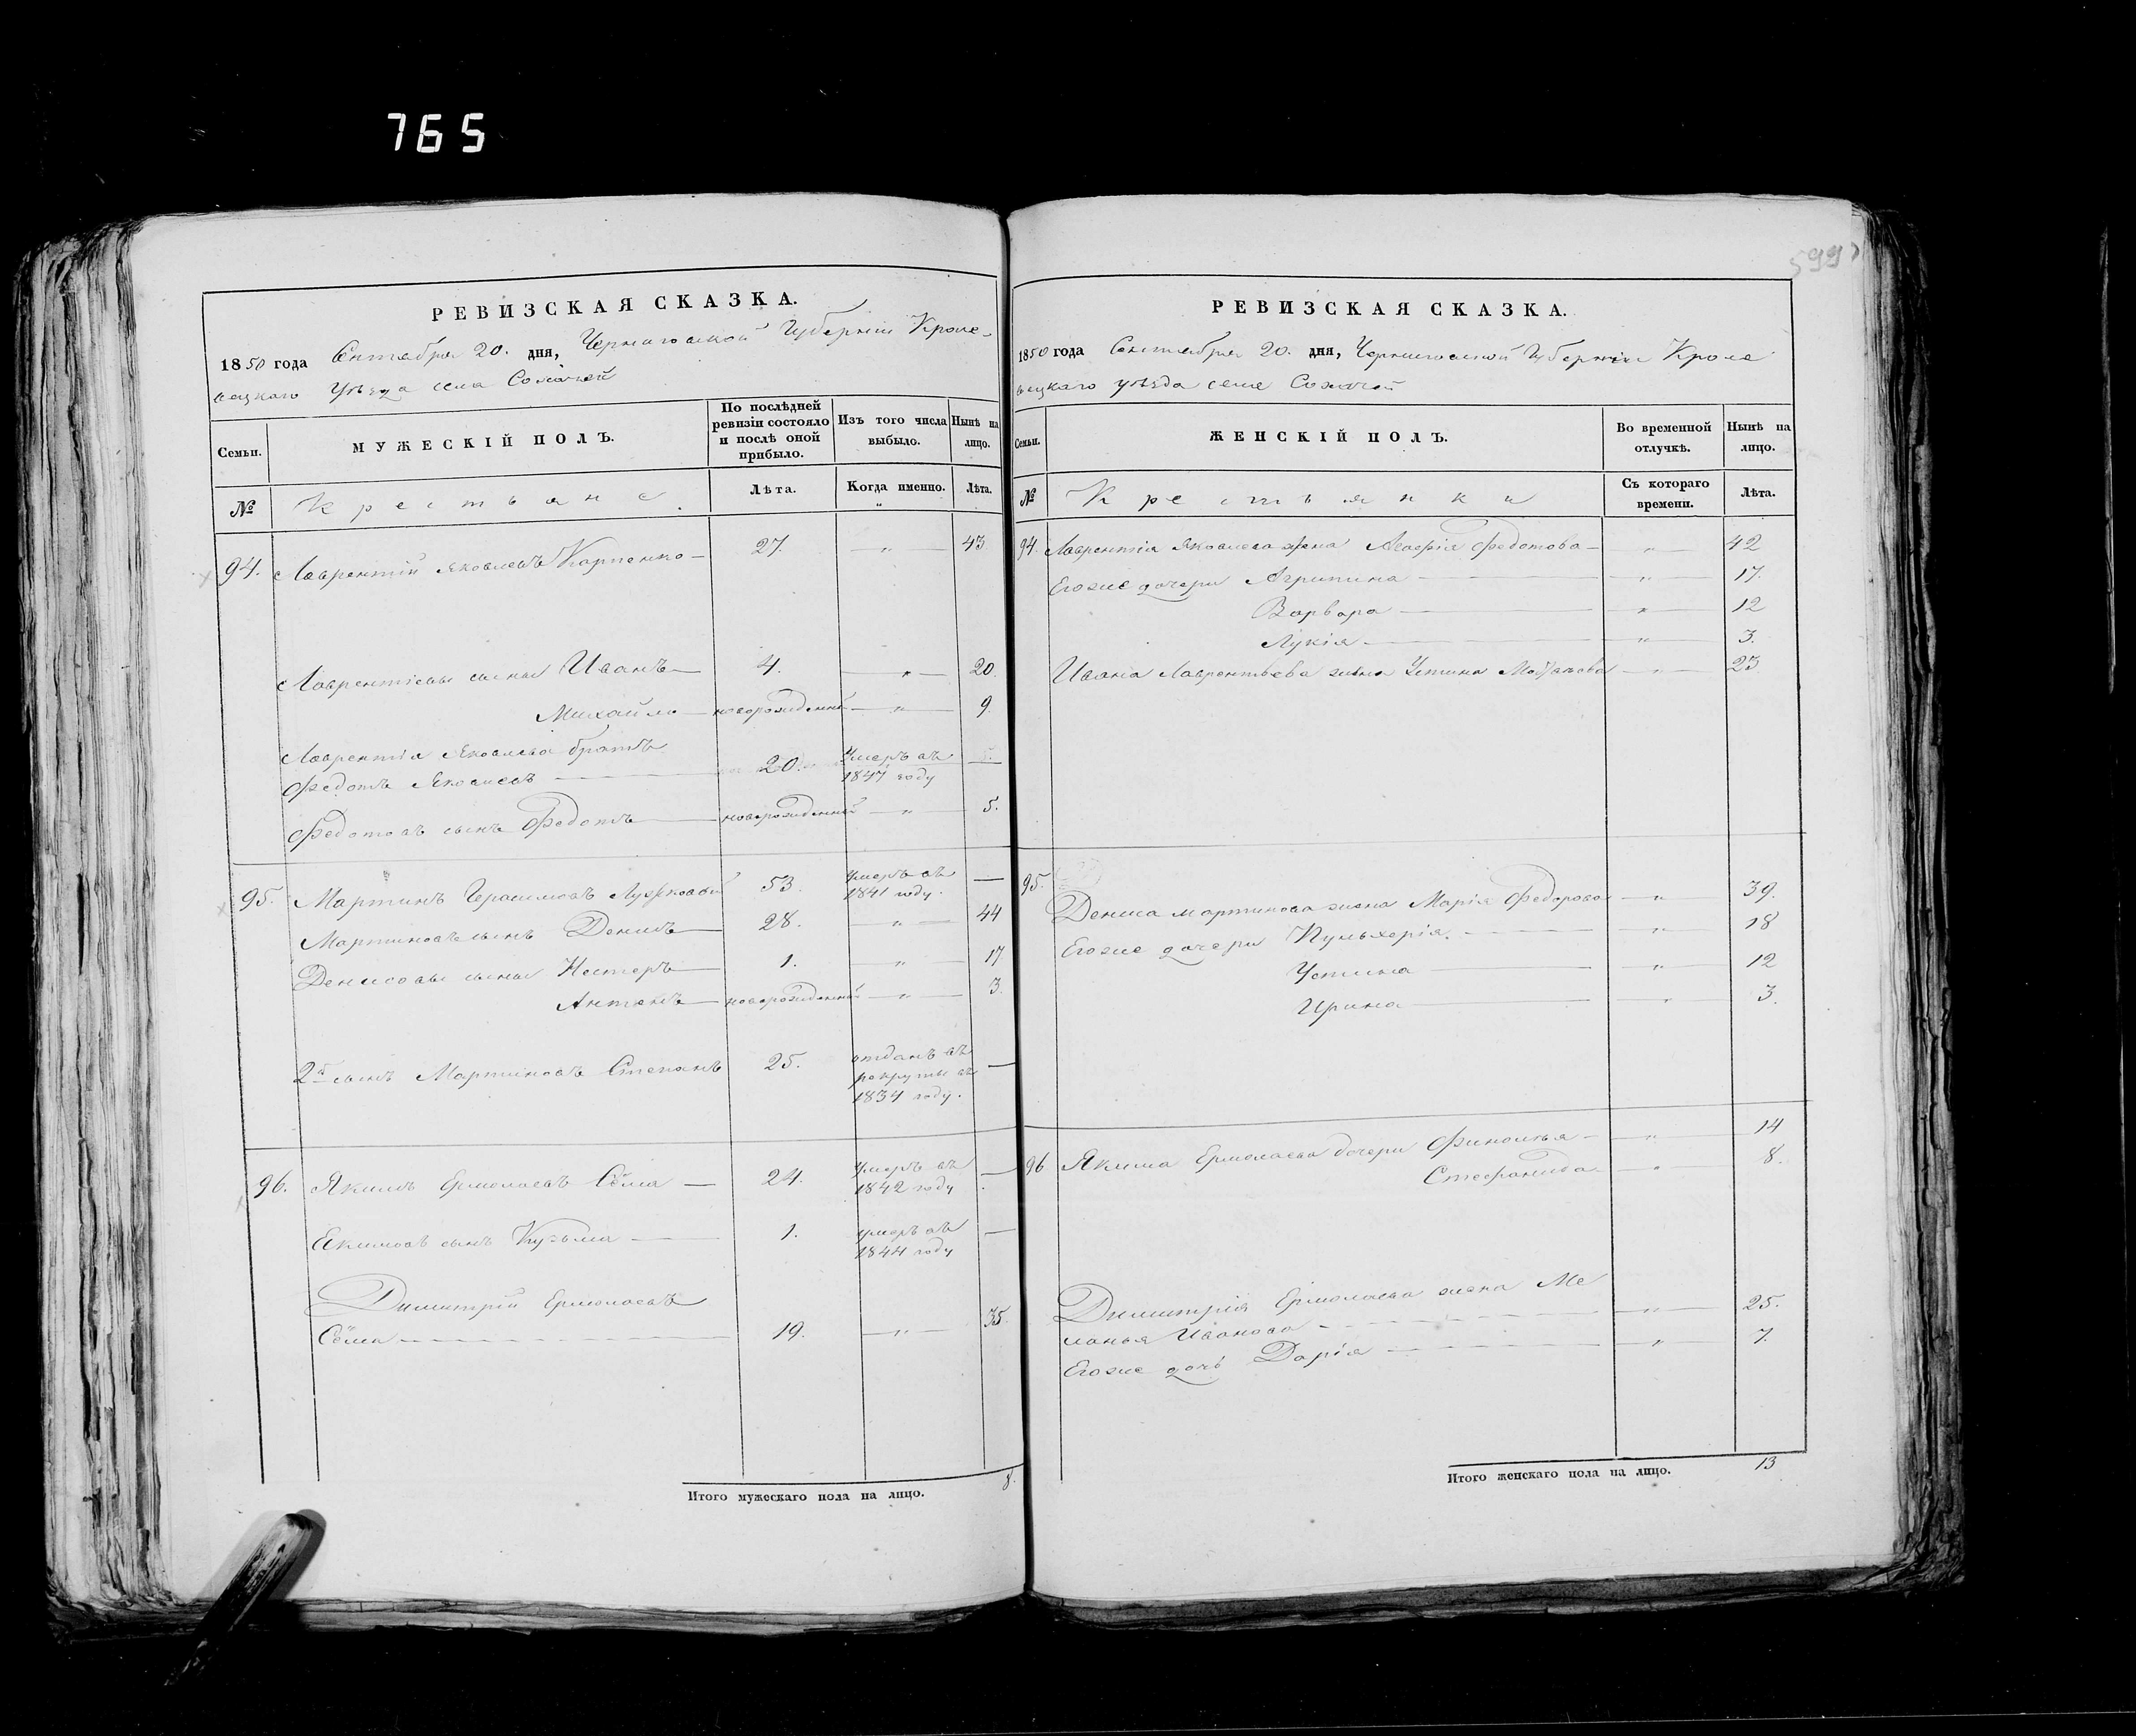 765
5997
РЕВИЗСКАЯ СКАЗКА.
1850 года Сентября 20. дня, Черниговской Губернiи Кроле-
вецкаго Уѣзда села
Семьи.
МУЖЕСКІЙ ПОЛЪ.
По послѣдней ревизіи состояло и послѣ оной прибыло.
Изъ того числа выбыло.
Нынѣ на лицо.
№
Крестьяне
Лѣта.
Когда именно.
Лѣта.
94. Лаврентій Яковлевъ Карпенко — 27. — „ — 43
Лаврентіевы сыны Иванъ — 4. — „ — 20.
Михайло — новорожденный — „ — 9.
Лаврентія Яковлева братъ
Федотъ Яковлевъ — 20. Умеръ въ 1847 году —
Федотовъ сынъ Федотъ — новорожденный — „ — 5.
95. Мартинъ Герасимовъ 53. умеръ въ 1841 году. —
Мартиновъ сынъ Денисъ — 28. — „ — 44
Денисовы сыны Нестеръ — 1. — „ — 17
Антонъ — новорожденный — „ — 3.
2й сынъ Мартиновъ Степанъ 25. отданъ въ рекруты въ 1834 году. —
96. Якимъ Ермолаевъ Сёма — 24. умеръ въ 1842 году —
Екимовъ сынъ Кузьма — 1. умеръ въ 1844 году —
Димитрій Ермолаевъ
Сёма — 19. — „ — 35.
Итого мужескаго пола на лицо. 8.
РЕВИЗСКАЯ СКАЗКА.
1850 года Сентября 20. дня, Черниговской Губернiи Кроле
вецкаго уѣзда села
Семьи.
ЖЕНСКІЙ ПОЛЪ.
Во временной отлучкѣ.
Нынѣ на лицо.
№
Крестьянки
Съ котораго времени.
Лѣта.
94. Лаврентія Яковлева жена Агафія Федотова — „ — 42
Егоже дочери Агрипина — „ — 17.
Варвара — „ — 12
Лукія — „ — 3.
Ивана Лаврентьева жена Устина — „ — 23.
95. Дениса Мартинова жена Марія Федорова — „ — 39.
Егоже дочери Пульхерія. — „ — 18
Устина — „ — 12
Ирина — „ — 3.
96 Якима Ермолаева дочери — „ — 14
Стефанида — „ — 8.
Димитрія Ермолаева жена Ме
ланья Иванова — „ — 25.
Егоже дочь Дарія — „ — 7.
Итого женскаго пола на лицо. 13